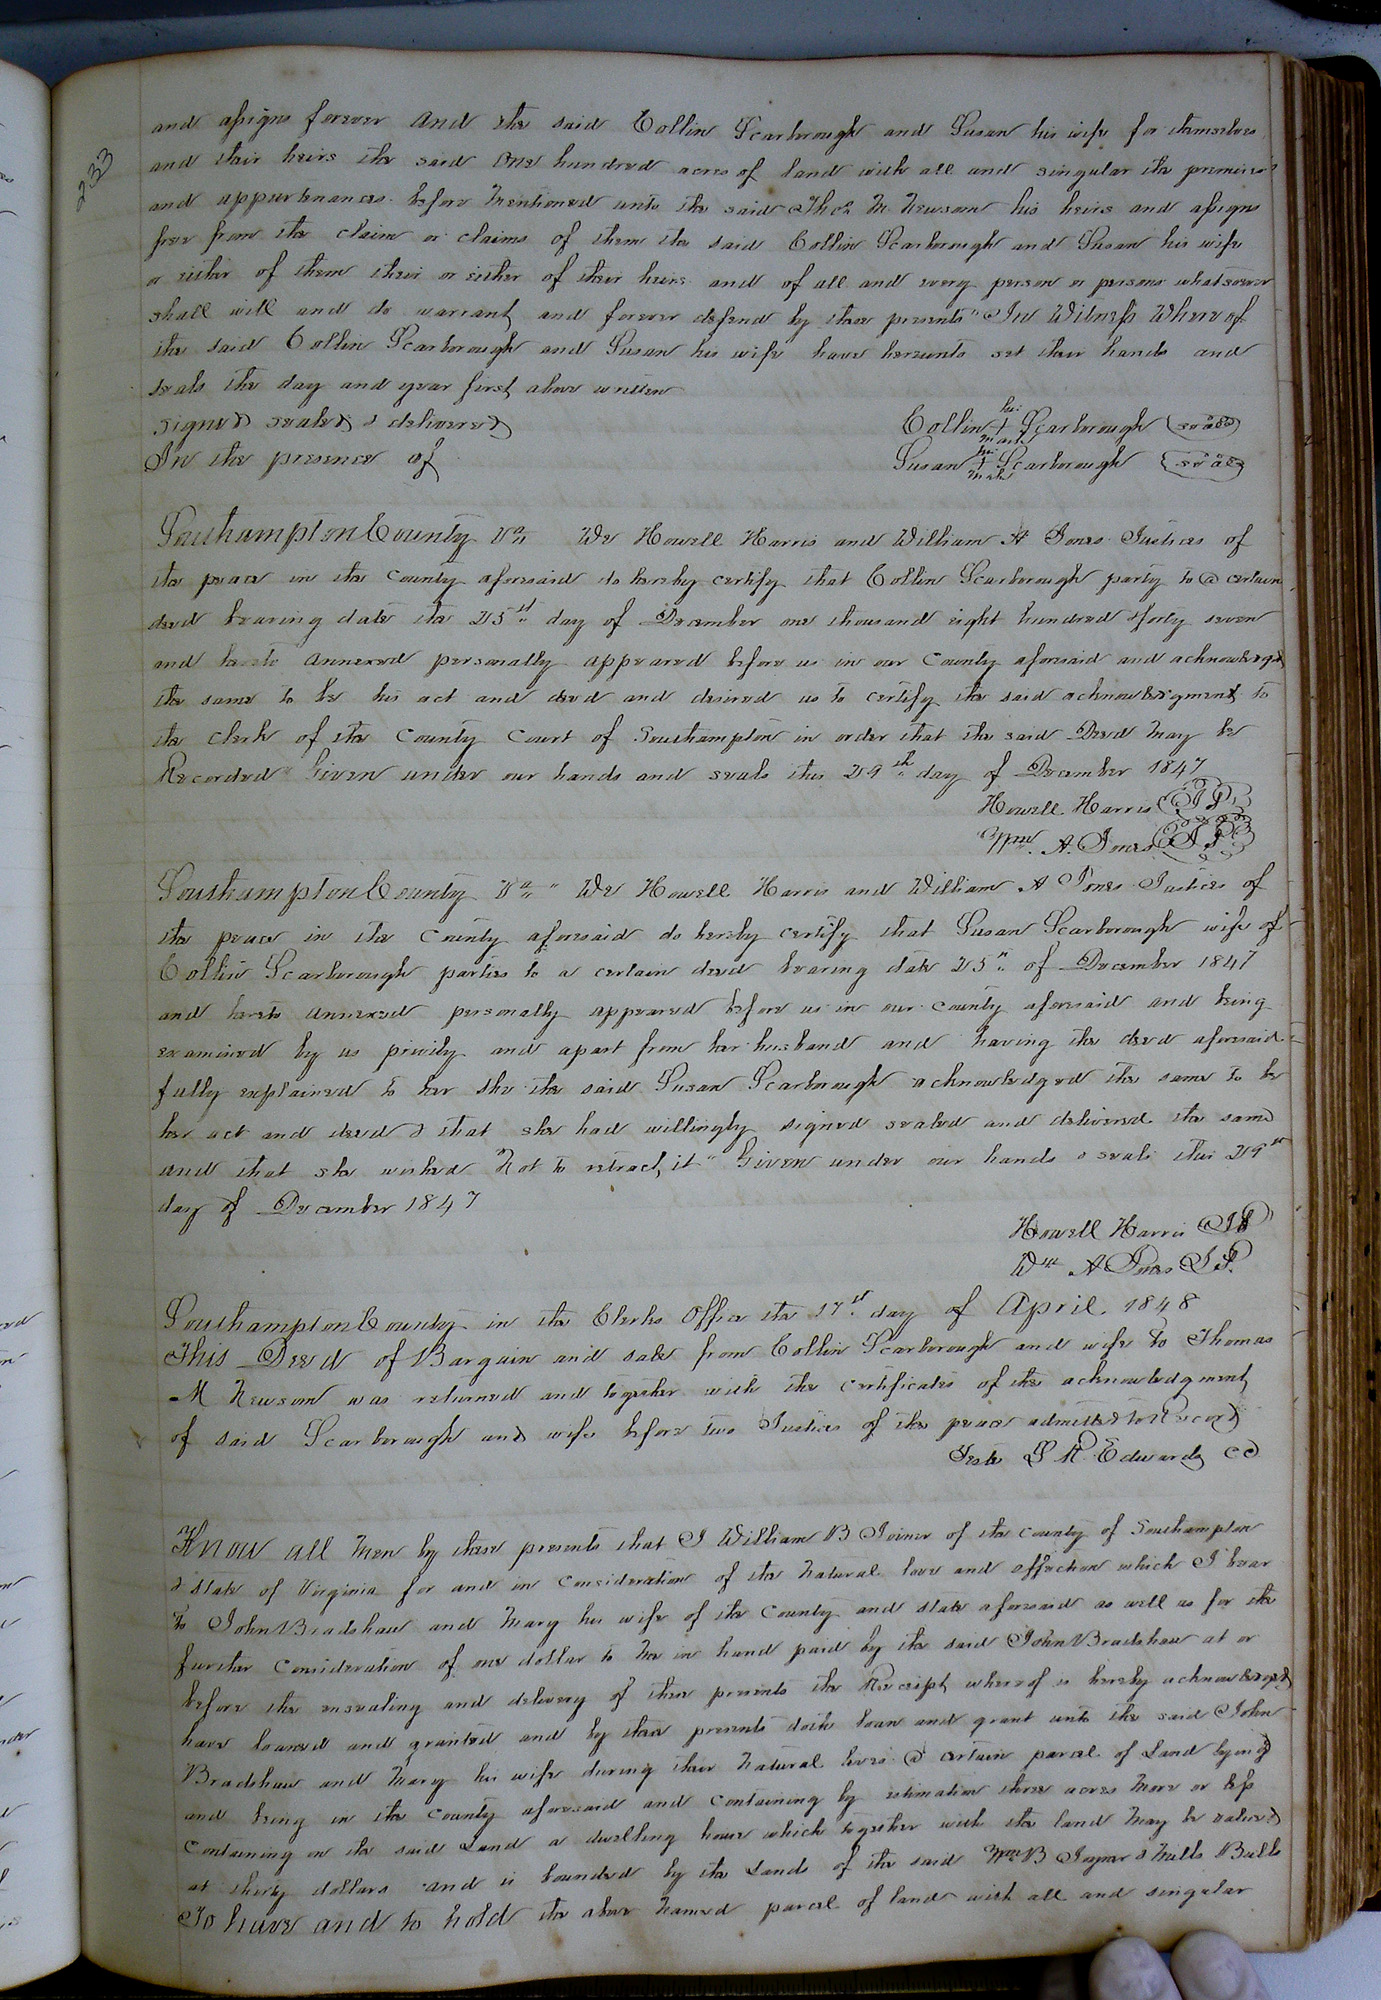 233
and assigns forever And the said Collin Scarborough and Susan his wife for themselves
and their heirs the said One hundred acres of land with all and singular the premises
and appurtenances before Mentioned unto the said Thos M. Newsom his heirs and assigns
free from the claim or claims of them the said Collin Scarborough and Susan his wife
or either of them their or either of their heirs and of all and every person or persons whatsoever
shall will and do warrant and forever defend by these presents" In Witness Whereof
the said Collin Scarborough and Susan his wife have hereunto set their hands and
seals the day and year first above written
Signed sealed & delivered
In the presence of
his
Collin + Scarborough (seal)
mark
her
Susan + Scarborough (seal)
mark
Southampton County Va" We Howell Harris and William A Jones Justices of
the peace in the County aforesaid do hereby certify that Collin Scarborough party to a certain
deed bearing date the 25th day of December one thousand eight hundred & forty seven
and hereto annexed personally appeared before us in our County aforesaid and acknowledged
the same to be his act and deed and desired us to certify the said acknowledgment to
the clerk of the County Court of Southampton in order that the said Deed May be
Recorded" Given under our hands and seals this 29th day of December 1847
Howell Harris J P
Wm. A. Jones J P
Southampton County Va" We Howell Harris and William A Jones Justices of
the peace in the County aforesaid do hereby certify that Susan Scarborough wife of
Collin Scarborough parties to a certain deed bearing date 25th of December 1847
and hereto annexed personally appeared before us in our County aforesaid and being
examined by us privily and apart from her husband and having the deed aforesaid
fully explained to her she the said Susan Scarborough acknowledged the same to be
her act and deed & that she had willingly signed sealed and delivered the same
and that she wished Not to retract it" Given under our hands & seals this 29th
day of December 1847
Howell Harris J P
Wm A Jones J P.
Southampton County in the Clerks Office the 17th day of April. 1848
This Deed of Bargain and sale from Collin Scarborough and wife to Thomas
M Newsom was returned and together with the certificates of the acknowledgment
of said Scarborough and wife before two Justices of the peace admitted to Record
Teste L R Edwards CC
Know all Men by these presents that I William B Joiner of the County of Southampton
& State of Virginia for and in Consideration of the Natural love and affection which I bear
to John Bradshaw and Mary his wife of the County and state aforesaid as well as for the
further Consideration of one dollar to Me in hand paid by the said John Bradshaw at or
before the ensealing and delivery of these presents the Receipt whereof is hereby acknowledged
have loaned and granted and by these presents doth loan and grant unto the said John
Bradshaw and Mary his wife during their Natural lives a certain parcel of Land lying
and being in the County aforesaid and Containing by estimation three acres More or less
Containing on the said Land a dwelling house which together with the land May be valued
at thirty dollars and is bounded by the Lands of the said Wm B Joyner & Mills Butts
To have and to hold the above Named parcel of land with all and singular